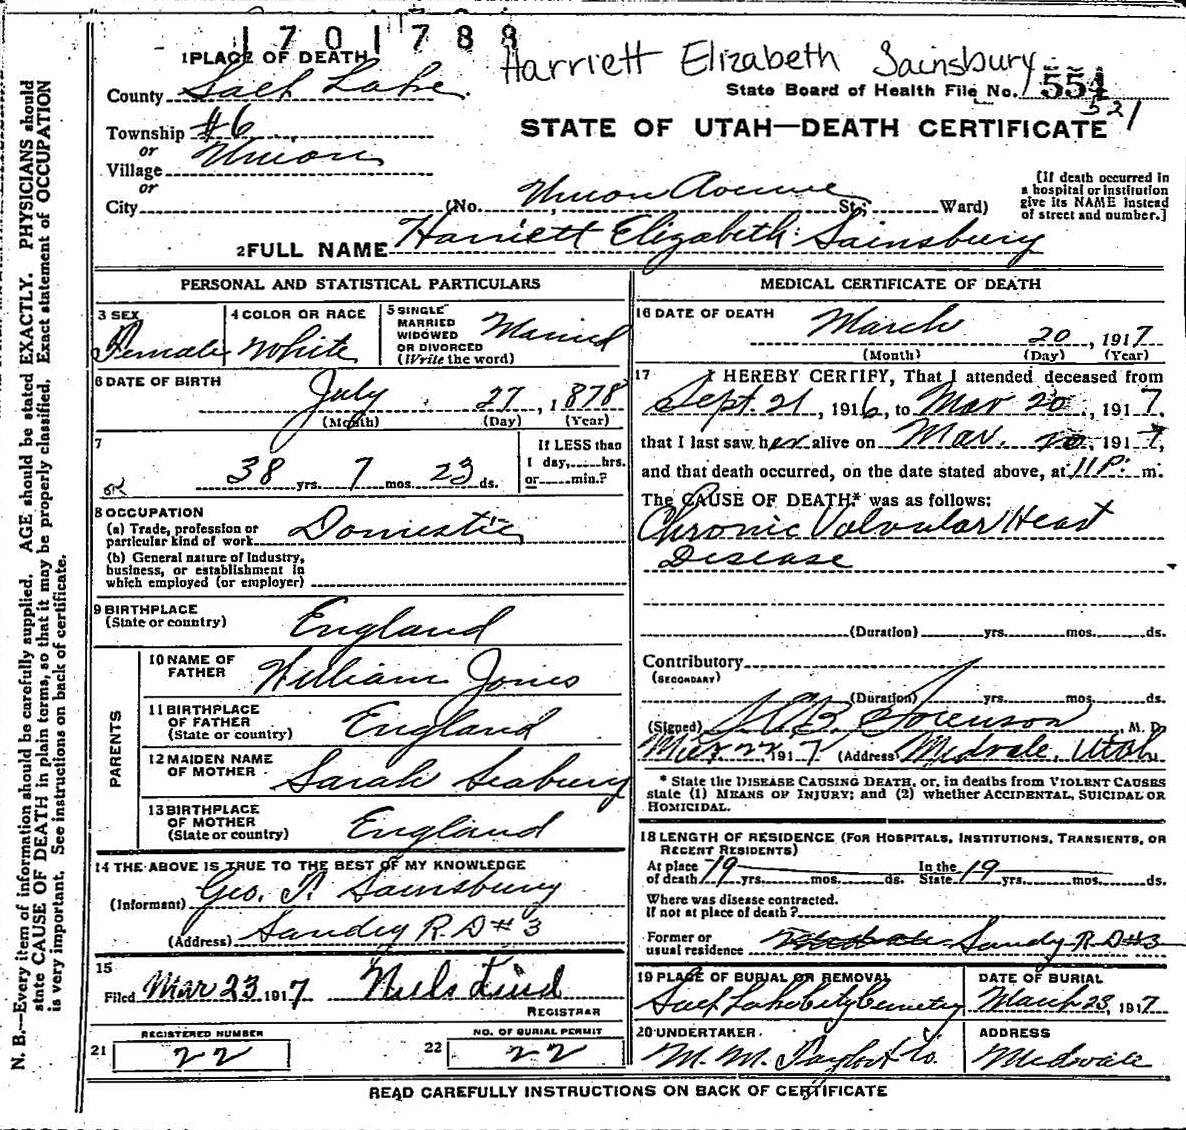 1701788
Harriett Elizabeth Sainsbury
1 PLACE OF DEATH
County Salt Lake
State Board of Health File No. 554
521
Township #6
or
Village Union
or
STATE OF UTAH—DEATH CERTIFICATE
City (No. Union Avenue St.; Ward)
[If death occurred in
a hospital or institution
give its NAME instead
of street and number.]
2 FULL NAME Harriett Elizabeth Sainsbury
PERSONAL AND STATISTICAL PARTICULARS
3 SEX
Female
4 COLOR OR RACE
White
5 SINGLE
MARRIED
WIDOWED
OR DIVORCED
(Write the word)
Married
6 DATE OF BIRTH
July 27, 1878
(Month) (Day) (Year)
7
38 yrs. 7 mos. 23 ds.
If LESS than
1 day, hrs.
or min.?
OK
8 OCCUPATION
(a) Trade, profession or
particular kind of work Domestic
(b) General nature of Industry,
business, or establishment in
which employed (or employer)
9 BIRTHPLACE
(State or country) England
PARENTS
10 NAME OF
FATHER William Jones
11 BIRTHPLACE
OF FATHER
(State or country) England
12 MAIDEN NAME
OF MOTHER Sarah Seabury
13 BIRTHPLACE
OF MOTHER
(State or country) England
14 THE ABOVE IS TRUE TO THE BEST OF MY KNOWLEDGE
(Informant) Geo. T. Sainsbury
(Address) Sandy R.D #3
15
Filed Mar 23 1917 Niels Lind
REGISTRAR
REGISTERED NUMBER
21 22
NO. OF BURIAL PERMIT
22 22
MEDICAL CERTIFICATE OF DEATH
16 DATE OF DEATH
March 20, 1917
(Month) (Day) (Year)
17 I HEREBY CERTIFY, That I attended deceased from
Sept. 21, 1916, to Mar 20, 1917,
that I last saw her alive on Mar. 20, 1917,
and that death occurred, on the date stated above, at 11 P. m.
The CAUSE OF DEATH* was as follows:
Chronic Valvular Heart
Disease
(Duration) yrs. mos. ds.
Contributory
(SECONDARY)
(Duration) yrs. mos. ds.
(Signed) Sorenson, M. D.
Mar 22 1917 (Address) Midvale, Utah
* State the DISEASE CAUSING DEATH, or, in deaths from VIOLENT CAUSES
state (1) MEANS OF INJURY; and (2) whether ACCIDENTAL, SUICIDAL OR
HOMICIDAL.
18 LENGTH OF RESIDENCE (FOR HOSPITALS, INSTITUTIONS, TRANSIENTS, OR
RECENT RESIDENTS)
At place In the
of death 19 yrs. mos. ds. State 19 yrs. mos. ds.
Where was disease contracted.
If not at place of death?
Former or
usual residence Midvale Sandy R.D #3
19 PLACE OF BURIAL OR REMOVAL
Salt Lake City Cemetery
DATE OF BURIAL
March 23, 1917
20 UNDERTAKER
M. M. Co.
ADDRESS
Midvale
READ CAREFULLY INSTRUCTIONS ON BACK OF CERTIFICATE
N. B.—Every item of information should be carefully supplied. AGE should be stated EXACTLY. PHYSICIANS should
state CAUSE OF DEATH in plain terms, so that it may be properly classified. Exact statement of OCCUPATION
is very important. See instructions on back of certificate.